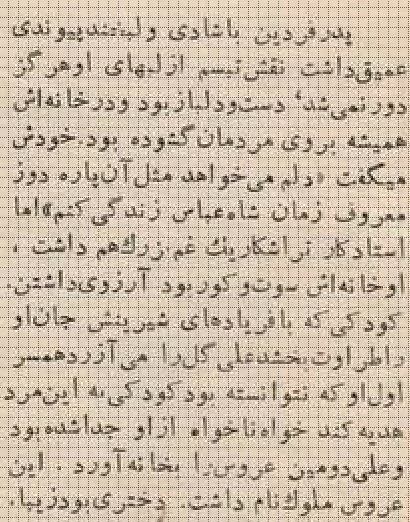 پدر فردین باشادی و لبخند پیوندی
عمیق داشت نقش تبسم از لبهای او هرگز
دور نمی‌شد، دست و دلباز بود و در خانه‌اش
همیشه بروی مردمان گشوده بود. خودش
میگفت «دلم می‌خواهد مثل آن پاره دوز
معروف زمان شاه‌عباس زندگی کنم» اما
استادکار تراشکار یك غم بزرك هم داشت ،
او خانه‌اش سوت و کور بود آرزوی داشتن
کودکی که با فریادهای شیرینش جان او
را طراوت بخشد علی گل را می‌آزرد همسر
اول او که نتوانسته بود کودکی به این مرد
هدیه کند خواه ناخواه از او جدا شده بود
و علی دومین عروس را بخانه آورد . این
عروس ملوك نام داشت. دختری بود زیبا،